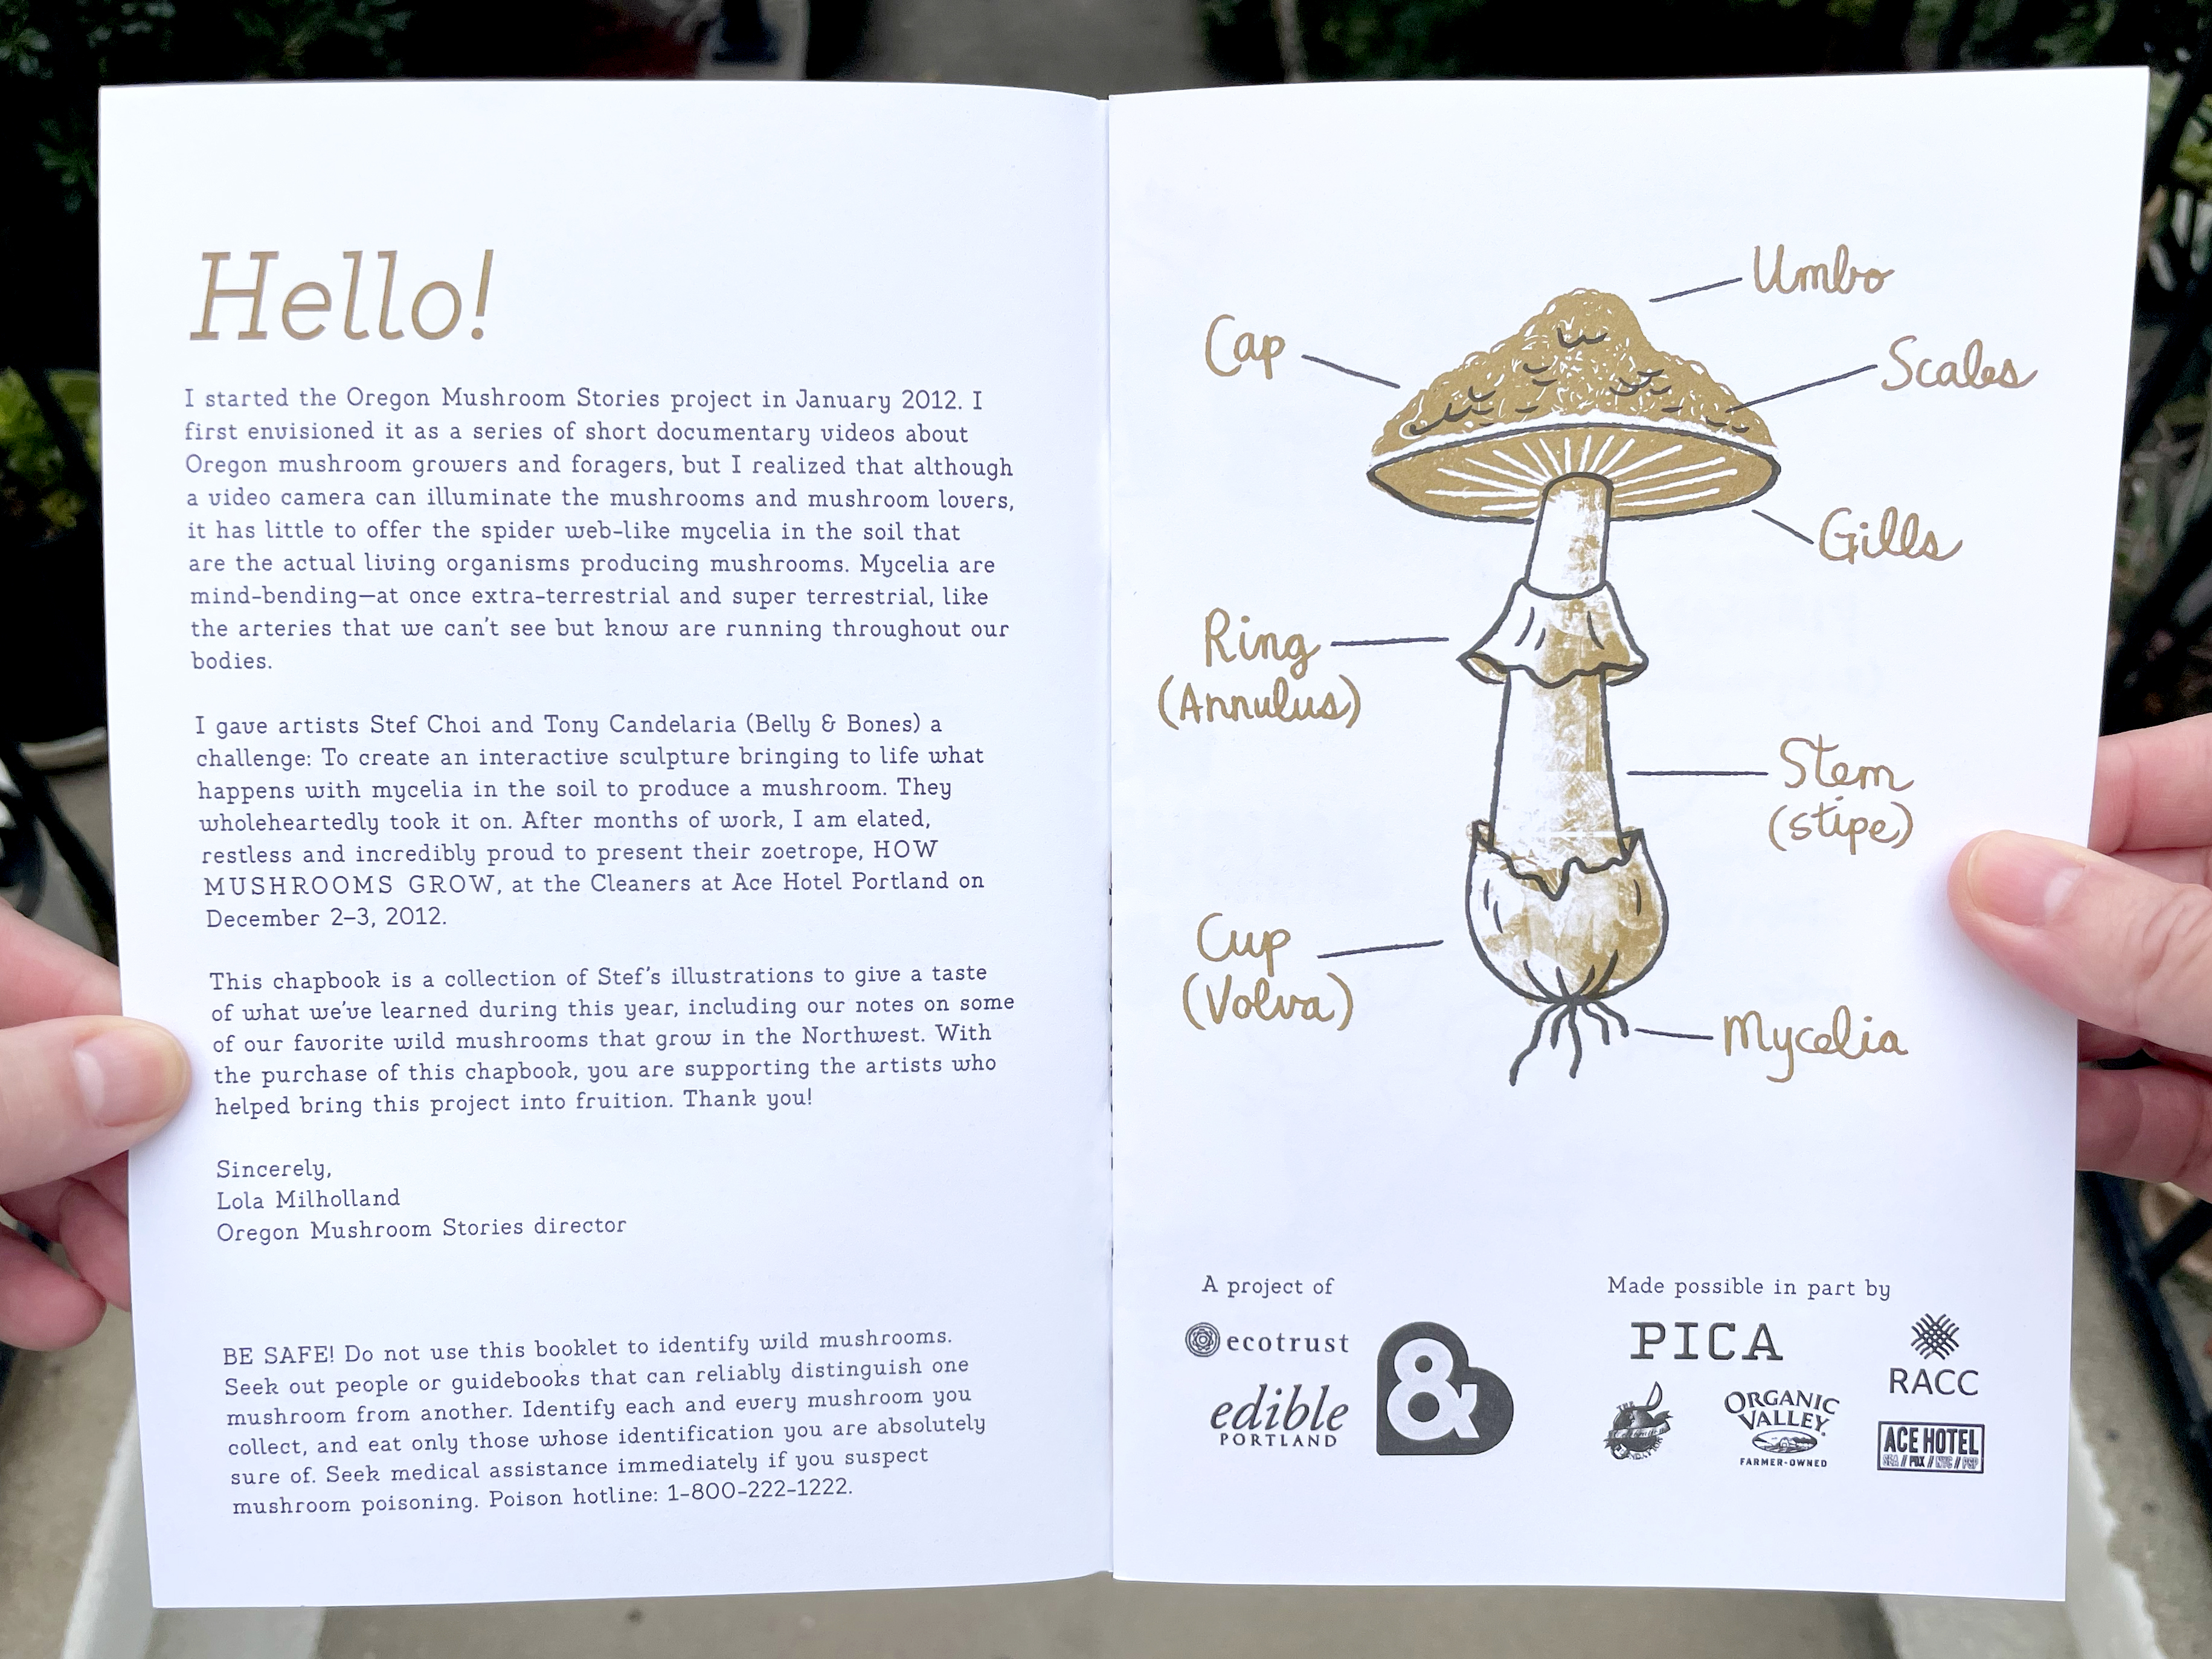 Hello!
I started the Oregon Mushroom Stories project in January 2012. I
first envisioned it as a series of short documentary videos about
Oregon mushroom growers and foragers, but I realized that although
a video camera can illuminate the mushrooms and mushroom lovers,
it has little to offer the spider web-like mycelia in the soil that
are the actual living organisms producing mushrooms. Mycelia are
mind-bending—at once extra-terrestrial and super terrestrial, like
the arteries that we can't see but know are running throughout our
bodies.
I gave artists Stef Choi and Tony Candelaria (Belly & Bones) a
challenge: To create an interactive sculpture bringing to life what
happens with mycelia in the soil to produce a mushroom. They
wholeheartedly took it on. After months of work, I am elated,
restless and incredibly proud to present their zoetrope, HOW
MUSHROOMS GROW, at the Cleaners at Ace Hotel Portland on
December 2–3, 2012.
This chapbook is a collection of Stef's illustrations to give a taste
of what we've learned during this year, including our notes on some
of our favorite wild mushrooms that grow in the Northwest. With
the purchase of this chapbook, you are supporting the artists who
helped bring this project into fruition. Thank you!
Sincerely,
Lola Milholland
Oregon Mushroom Stories director
BE SAFE! Do not use this booklet to identify wild mushrooms.
Seek out people or guidebooks that can reliably distinguish one
mushroom from another. Identify each and every mushroom you
collect, and eat only those whose identification you are absolutely
sure of. Seek medical assistance immediately if you suspect
mushroom poisoning. Poison hotline: 1-800-222-1222.
Umbo
Cap
Scales
Gills
Ring
(Annulus)
Stem
(stipe)
Cup
(Volva)
Mycelia
A project of
ecotrust
edible
PORTLAND
&
Made possible in part by
PICA
RACC
THE
ORGANIC
VALLEY
FARMER-OWNED
ACE HOTEL
SEA // PDX // NYC // PSP